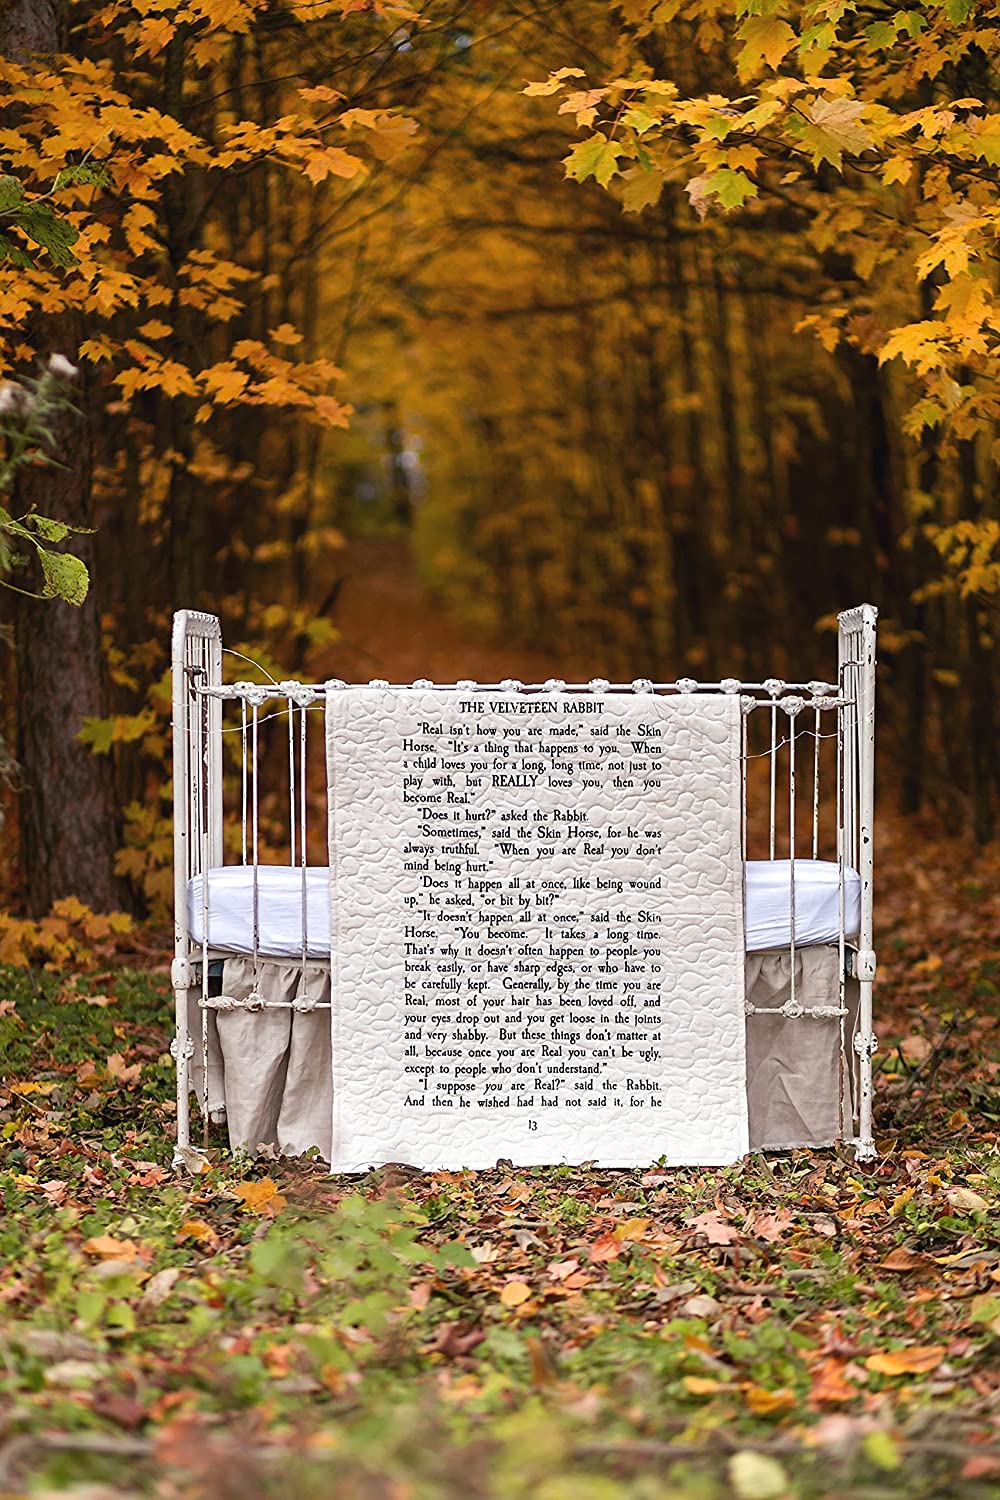 THE VELVETEEN RABBIT
"Real isn't how you are made," said the Skin
Horse. "It's a thing that happens to you. When
a child loves you for a long, long time, not just to
play with, but REALLY loves you, then you
become Real."
"Does it hurt?" asked the Rabbit.
"Sometimes," said the Skin Horse, for he was
always truthful. "When you are Real you don't
mind being hurt."
"Does it happen all at once, like being wound
up," he asked, "or bit by bit?"
"It doesn't happen all at once," said the Skin
Horse. "You become. It takes a long time.
That's why it doesn't often happen to people you
break easily, or have sharp edges, or who have to
be carefully kept. Generally, by the time you are
Real, most of your hair has been loved off, and
your eyes drop out and you get loose in the joints
and very shabby. But these things don't matter at
all, because once you are Real you can't be ugly,
except to people who don't understand."
"I suppose you are Real?" said the Rabbit.
And then he wished had had not said it, for he
13